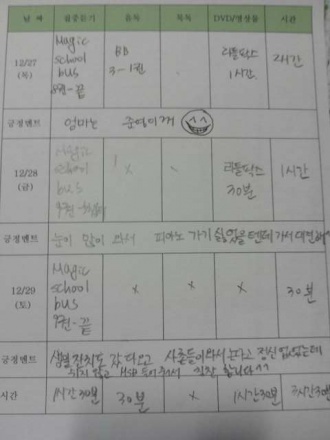 날 짜 집중듣기 음독 묵독 DVD/영상물 시간
12/27
(목)
Magic
school
bus
8권-끝
BB
3-1권
리틀팍스
1시간
2시간
긍정멘트 엄마는
12/28
(금)
매직
school
bus
x
리틀팍스
30분
1시간
긍정멘트 눈이 많이 와서 피아노 가기 싫었을텐데 가서
12/29
(토)
Magic
school
bus
9권-끝
x x x
30분
긍정멘트 생일잔치도 갔다오고 사촌들이 와서 논다고 정신 없었는데
시간 1시간30분 30분 x 1시간30분 3시간30분